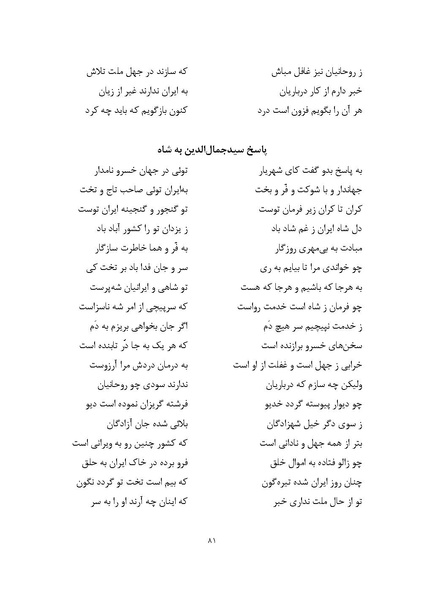 ز روحانیان نیز غافل مباش که سازند در جهل ملت تلاش
خبر دارم از کار درباریان به ایران ندارند غیر از زیان
هر آن را بگویم فزون است درد کنون بازگویم که باید چه کرد
پاسخ سیدجمال‌الدین به شاه
به پاسخ بدو گفت کای شهریار توئی در جهان خسرو نامدار
جهاندار و با شوکت و فّر و بخت به‌ایران توئی صاحب تاج و تخت
کران تا کران زیر فرمان توست تو گنجور و گنجینه ایران توست
دل شاه ایران ز غم شاد باد ز یزدان تو را کشور آباد باد
مبادت به بی‌مهری روزگار به فّر و هما خاطرت سازگار
چو خواندی مرا تا بیایم به ری سر و جان فدا باد بر تخت کی
به هرجا که باشیم و هرجا که هست تو شاهی و ایرانیان شه‌پرست
چو فرمان ز شاه است خدمت رواست که سرپیچی از امر شه ناسزاست
ز خدمت نپیچیم سر هیچ دَم اگر جان بخواهی بریزم به دَم
سخن‌های خسرو برازنده است که هر یک به جا دّر تابنده است
خرابی ز جهل است و غفلت از او است به درمان دردش مرا آرزوست
ولیکن چه سازم که درباریان ندارند سودی چو روحانیان
چو دیوار پیوسته گردد خدیو فرشته گریزان نموده است دیو
ز سوی دگر خیل شهزادگان بلائی شده جان آزادگان
بتر از همه جهل و نادانی است که کشور چنین رو به ویرانی است
چو زالو فتاده به اموال خلق فرو برده در خاک ایران به حلق
چنان روز ایران شده تیره‌گون که بیم است تخت تو گردد نگون
تو از حال ملت نداری خبر که اینان چه آرند او را به سر
۸۱